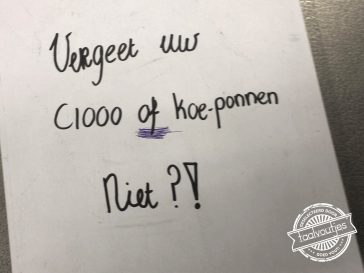 Vergeet uw
C1000 of koe-ponnen
Niet?!
GESELECTEERD DOOR
taalvoutjes